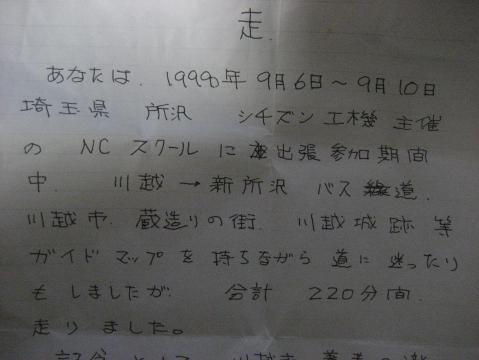 走.
あなたは. 1998年 9月6日～9月10日
埼玉県 所沢 シチズン工機 主催
の NC スクール に 出張参加期間
中. 川越 → 新所沢 バス 道.
川越市. 蔵造りの街. 川越城跡 等
ガイドマップ を 持ちながら 道に 迷ったり
も しましたが. 合計 220分間.
走りました。